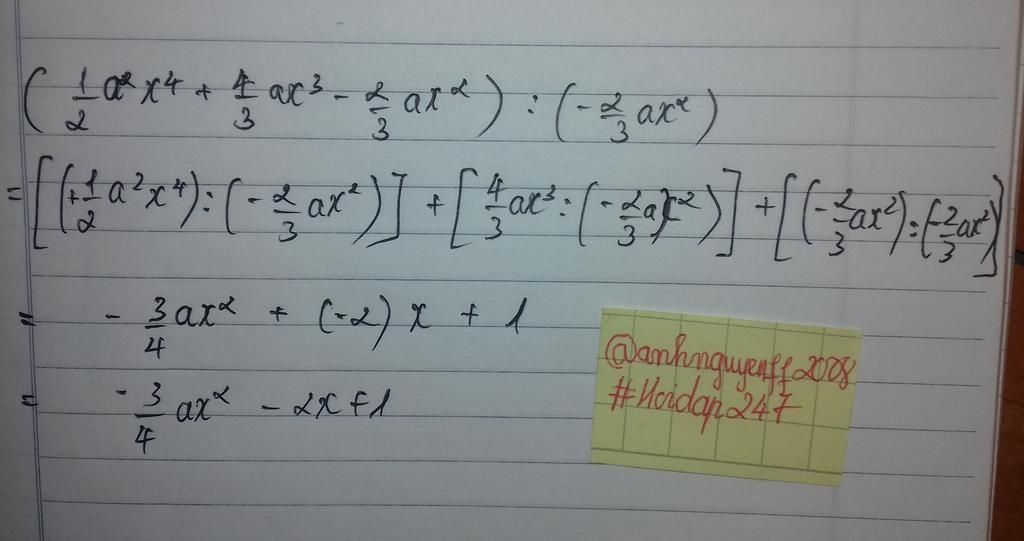 ( 1/2 a²x⁴ + 4/3 ax³ - 2/3 ax² ) : (- 2/3 ax²)
= [(+ 1/2 a²x⁴) : (- 2/3 ax²)] + [ 4/3 ax³ : (- 2/3 ax²)] + [(- 2/3 ax²) : (- 2/3 ax²)]
= - 3/4 ax² + (-2) x + 1
= - 3/4 ax² - 2x + 1
@anhnguyenff2008
#Hoidap247